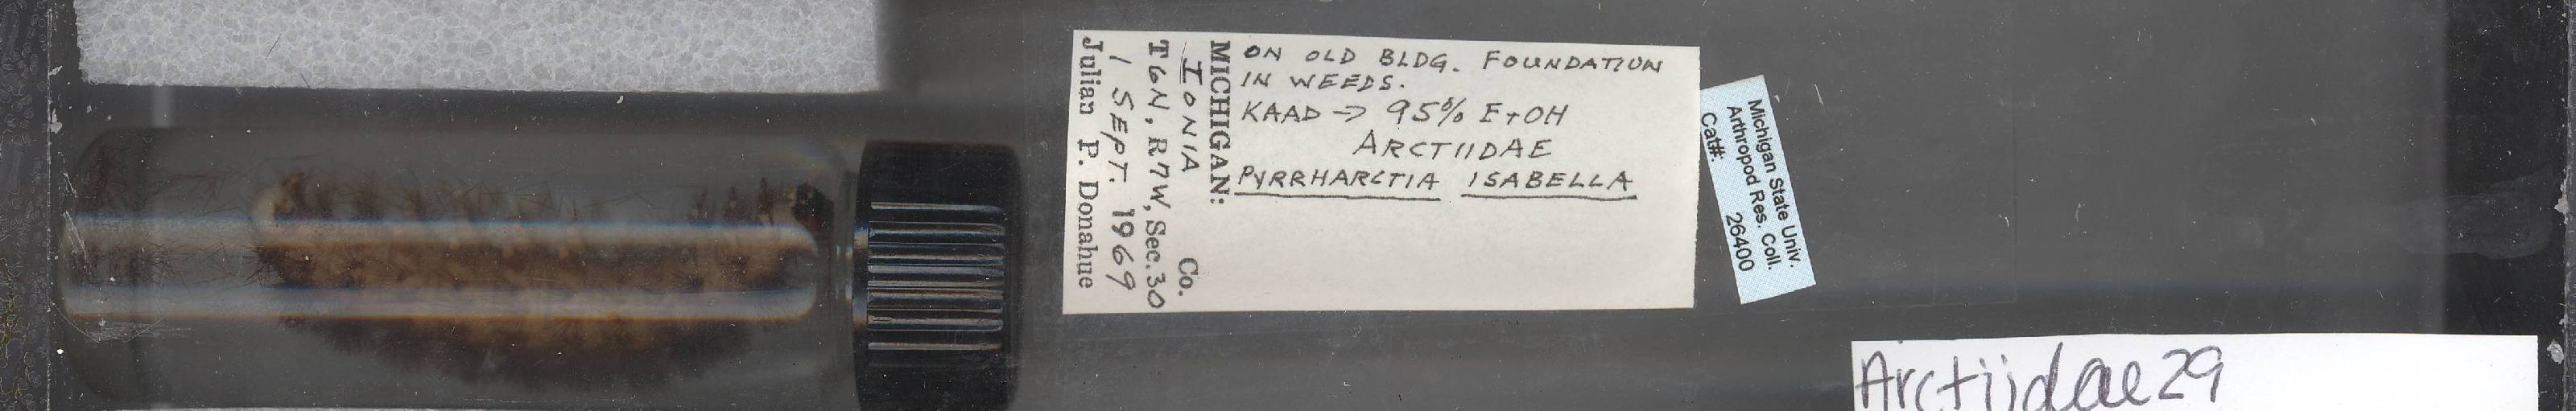 ON OLD BLDG. FOUNDATION
IN WEEDS.
KAAD → 95% EtOH
ARCTIIDAE
PYRRHARCTIA ISABELLA
MICHIGAN:
IONIA Co.
T6N, R7W, Sec. 30
1 SEPT. 1969
Julian P. Donahue
Michigan State Univ.
Arthropod Res. Coll.
Cat#: 26400
Arctiidae29